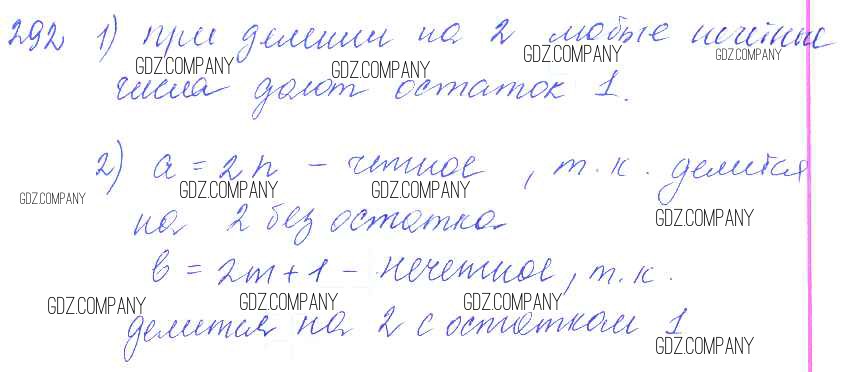 292 1) при делении на 2 любые нечётные
GDZ.COMPANY GDZ.COMPANY GDZ.COMPANY GDZ.COMPANY
числа дают остаток 1.
2) a = 2n - четное, т.к. делится
GDZ.COMPANY GDZ.COMPANY GDZ.COMPANY
на 2 без остатка
GDZ.COMPANY
b = 2m + 1 - нечетное, т.к.
GDZ.COMPANY GDZ.COMPANY GDZ.COMPANY
делится на 2 с остатком 1
GDZ.COMPANY